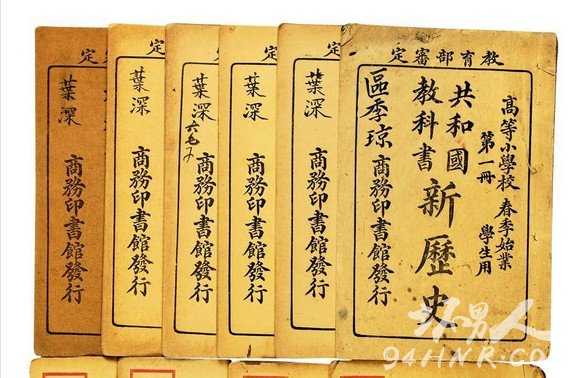 教育部審定
高等小學校 春季始業
第一冊 學生用
共和國
教科書
新歷史
區季琼
商務印書館發行
定
葉深
商務印書館發行
定
葉深
商務印書館發行
定
葉深
商務印書館發行
定
葉深
商務印書館發行
定
葉深
商務印書館發行